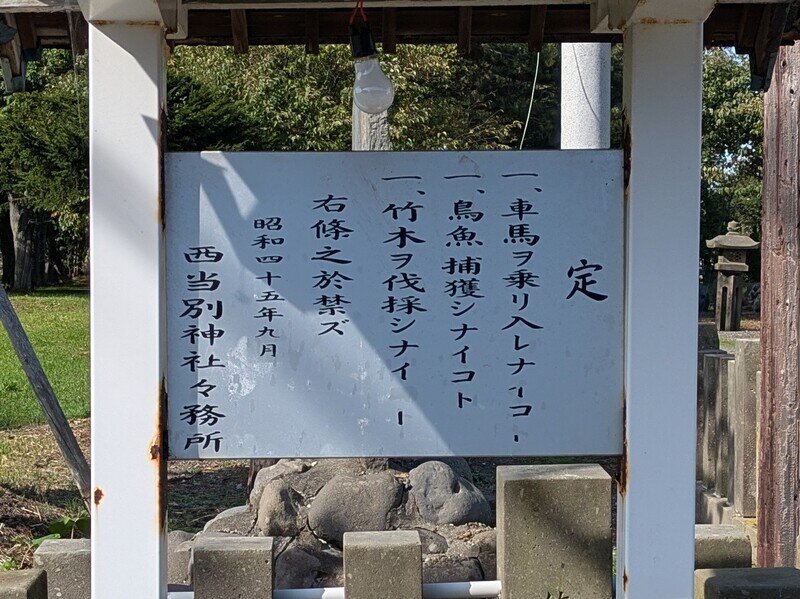 定
一、車馬ヲ乗リ入レナイコ
一、鳥魚捕獲シナイコト
一、竹木ヲ伐採シナイ
右條之於禁ズ
昭和四十五年九月
西当別神社々務所